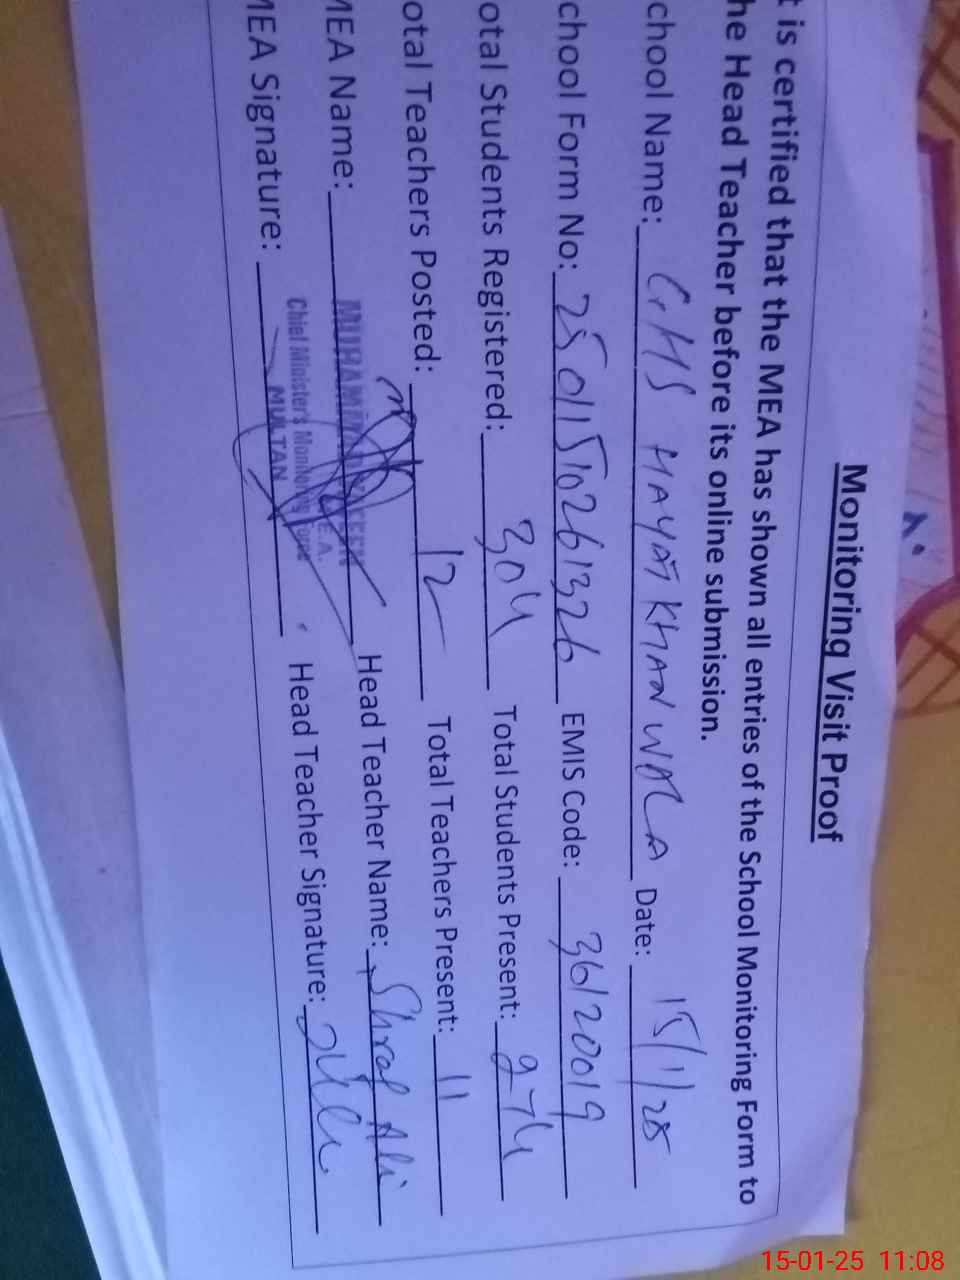 Monitoring Visit Proof
t is certified that the MEA has shown all entries of the School Monitoring Form to
he Head Teacher before its online submission.
chool Name: GHS HAYAT KHAN WALA Date: 15/1/25
chool Form No: 25011510261326 EMIS Code: 36120019
otal Students Registered: 304 Total Students Present: 274
otal Teachers Posted: 12 Total Teachers Present: 11
MEA Name: MUHAMMAD M.E.A. Head Teacher Name: Ali
Chief Minister's Monitoring Force
MULTAN
MEA Signature: Head Teacher Signature:
15-01-25 11:08